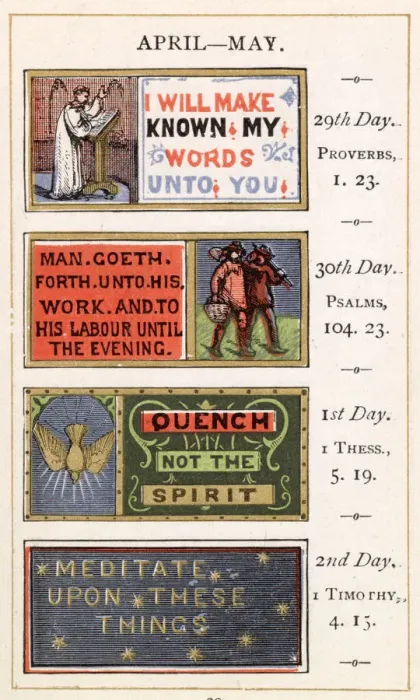 APRIL—MAY.
I WILL MAKE
KNOWN MY
WORDS
UNTO YOU.
29th Day.
PROVERBS,
1. 23.
MAN.GOETH.
FORTH.UNTO.HIS.
WORK.AND.TO
HIS LABOUR UNTIL
THE EVENING.
30th Day.
PSALMS,
104. 23.
QUENCH
NOT THE
SPIRIT
1st Day.
1 THESS.,
5. 19.
MEDITATE
UPON THESE
THINGS
2nd Day.
1 TIMOTHY,
4. 15.